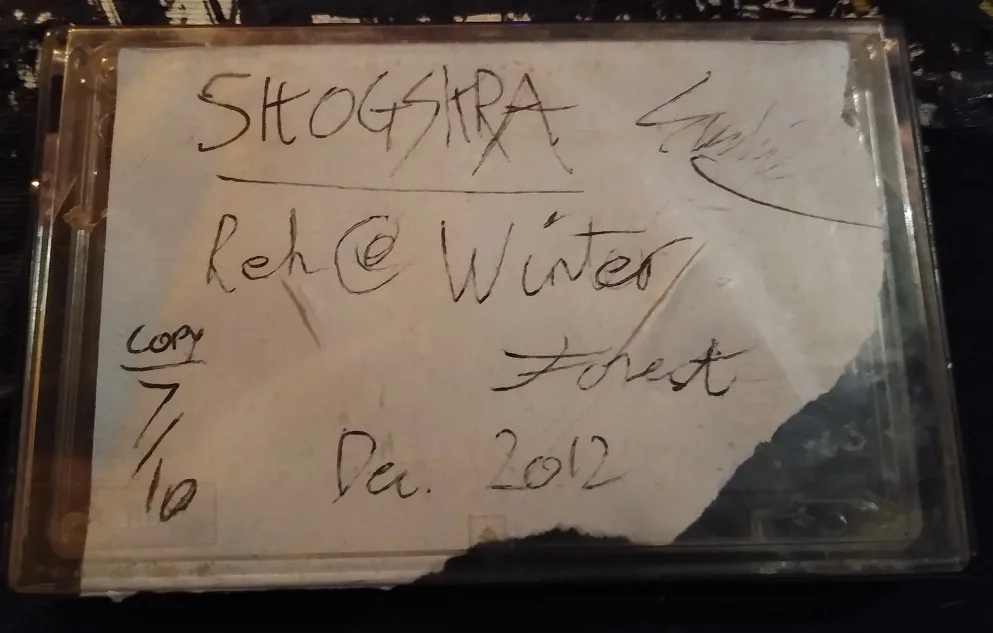 SHOGSHRA
Reh @ Winter
Forest
COPY
7/10
Dec. 2012